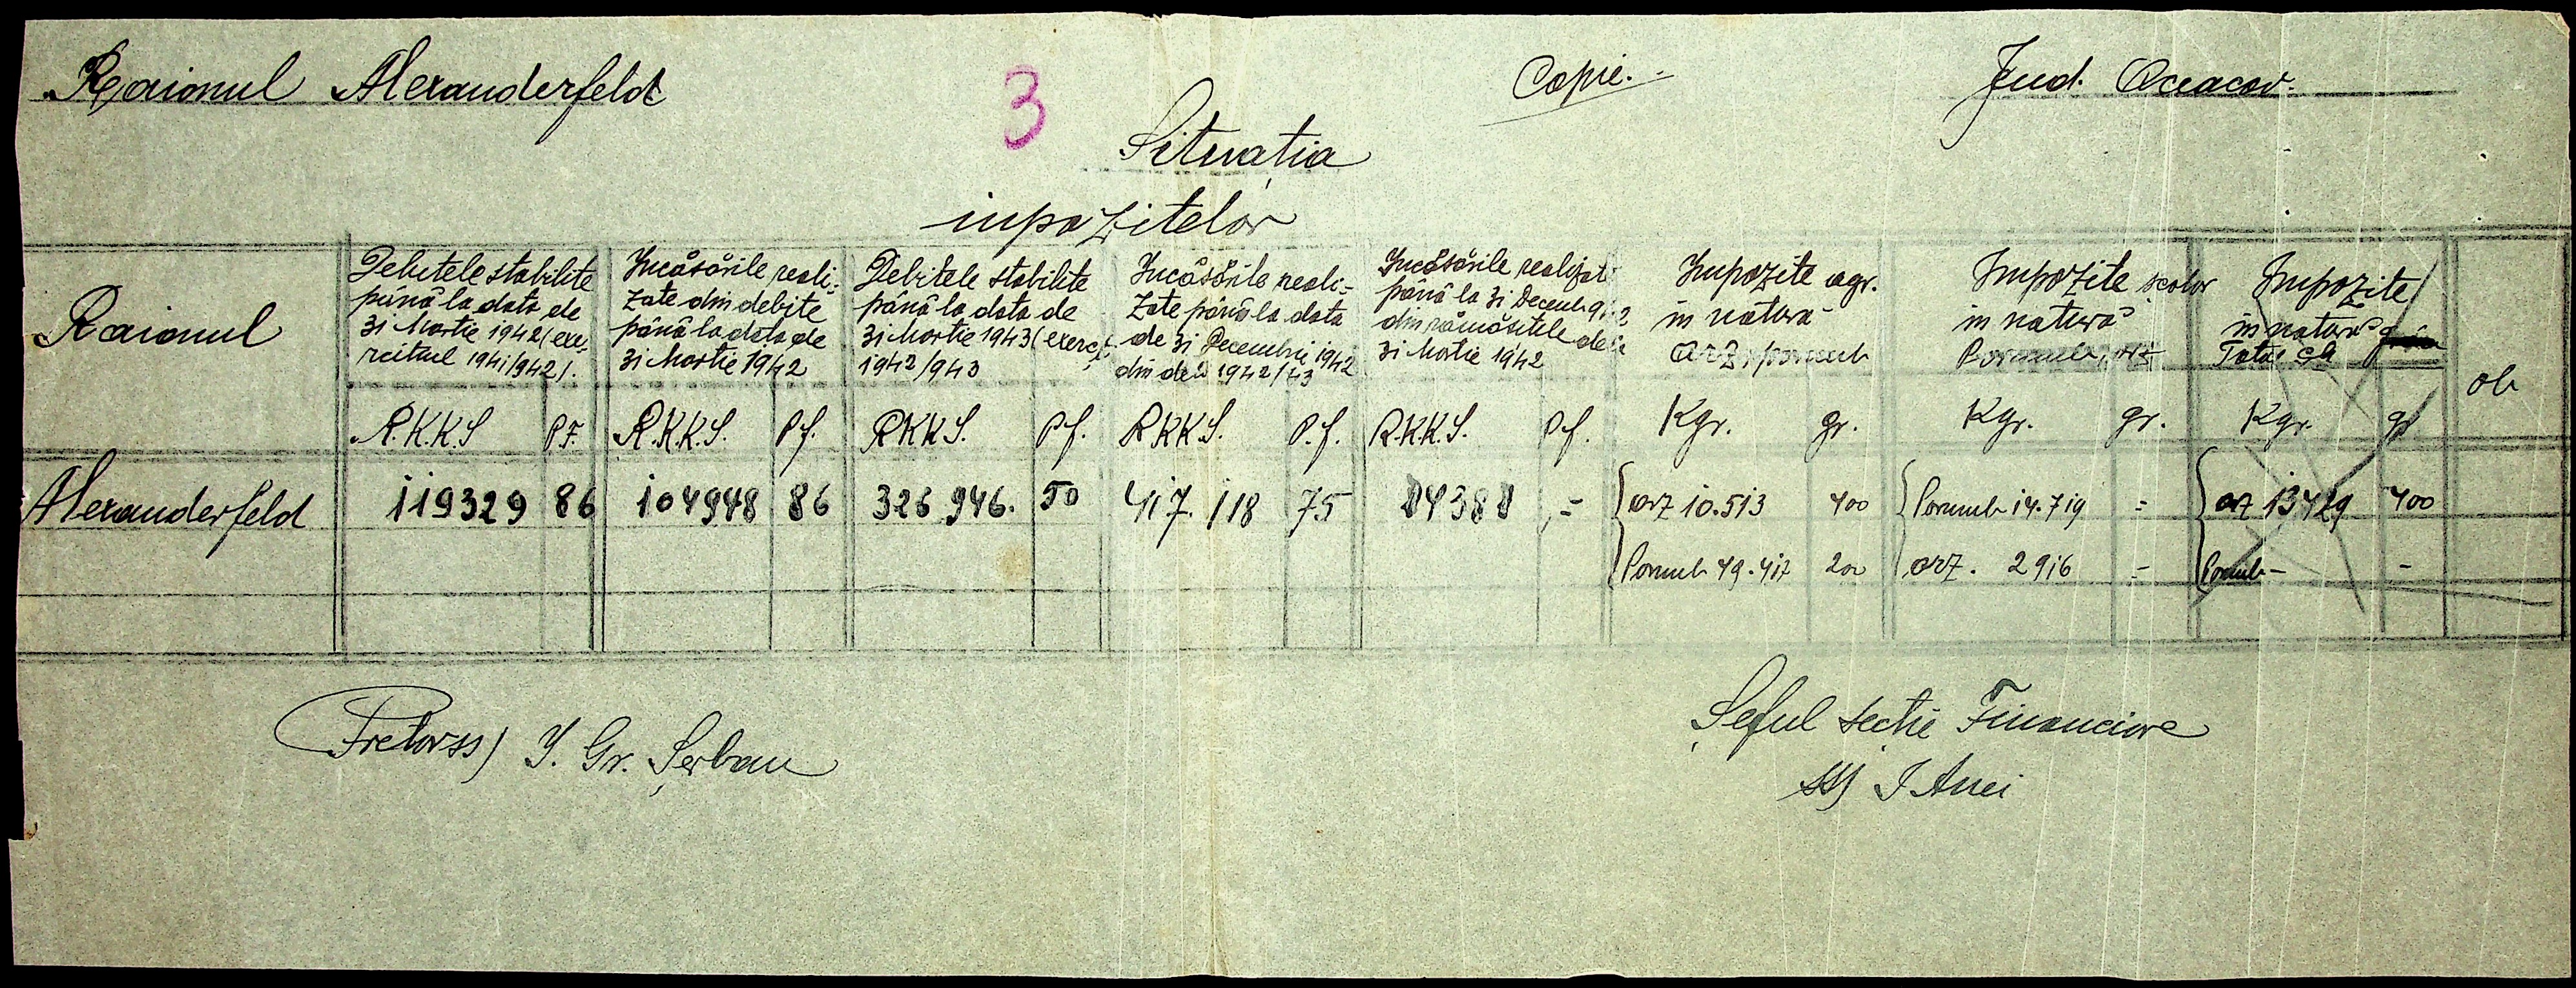 Raionul Alexanderfeld
3
Copie.
Jud. Oceacov.
Situația
inpozitelor
Raionul
Debitele stabilite
până la data de
31 Martie 1942 (exe-
rcitiul 1941/942).
Incăsările reali-
zate din debite
până la data de
31 Martie 1942
Debitele stabilite
până la data de
31 Martie 1943 (exerc.
1942/943
Incăsările reali-
zate până la data
de 31 Decembrie 1942
din deb 1942/43
Incăsările realizat
până la 31 Decemb 942
din rămășitele de
31 Martie 1942
Impozite agr.
in natura
Orz, porumb
Impozite scolar
in natură
Porumb, orz
Impozite
in natură
Total
ob
R.K.K.S P.F. R.K.K.S. Pf. RKKS. Pf. RKKS. P.f. R.K.K.S. Pf. Kgr. gr. Kgr. gr. Kgr. gr
Alexanderfeld 119329 86 104948 86 326 946. 50 417.118 75 14388 = orz 10.513 400 Porumb 14.719 = orz 13429 400
Porumb 49.417 200 orz. 2916 = Porumb - -
Pretor ss) I. Gr. Șerban
Șeful secție Financiare
ss) I Anei